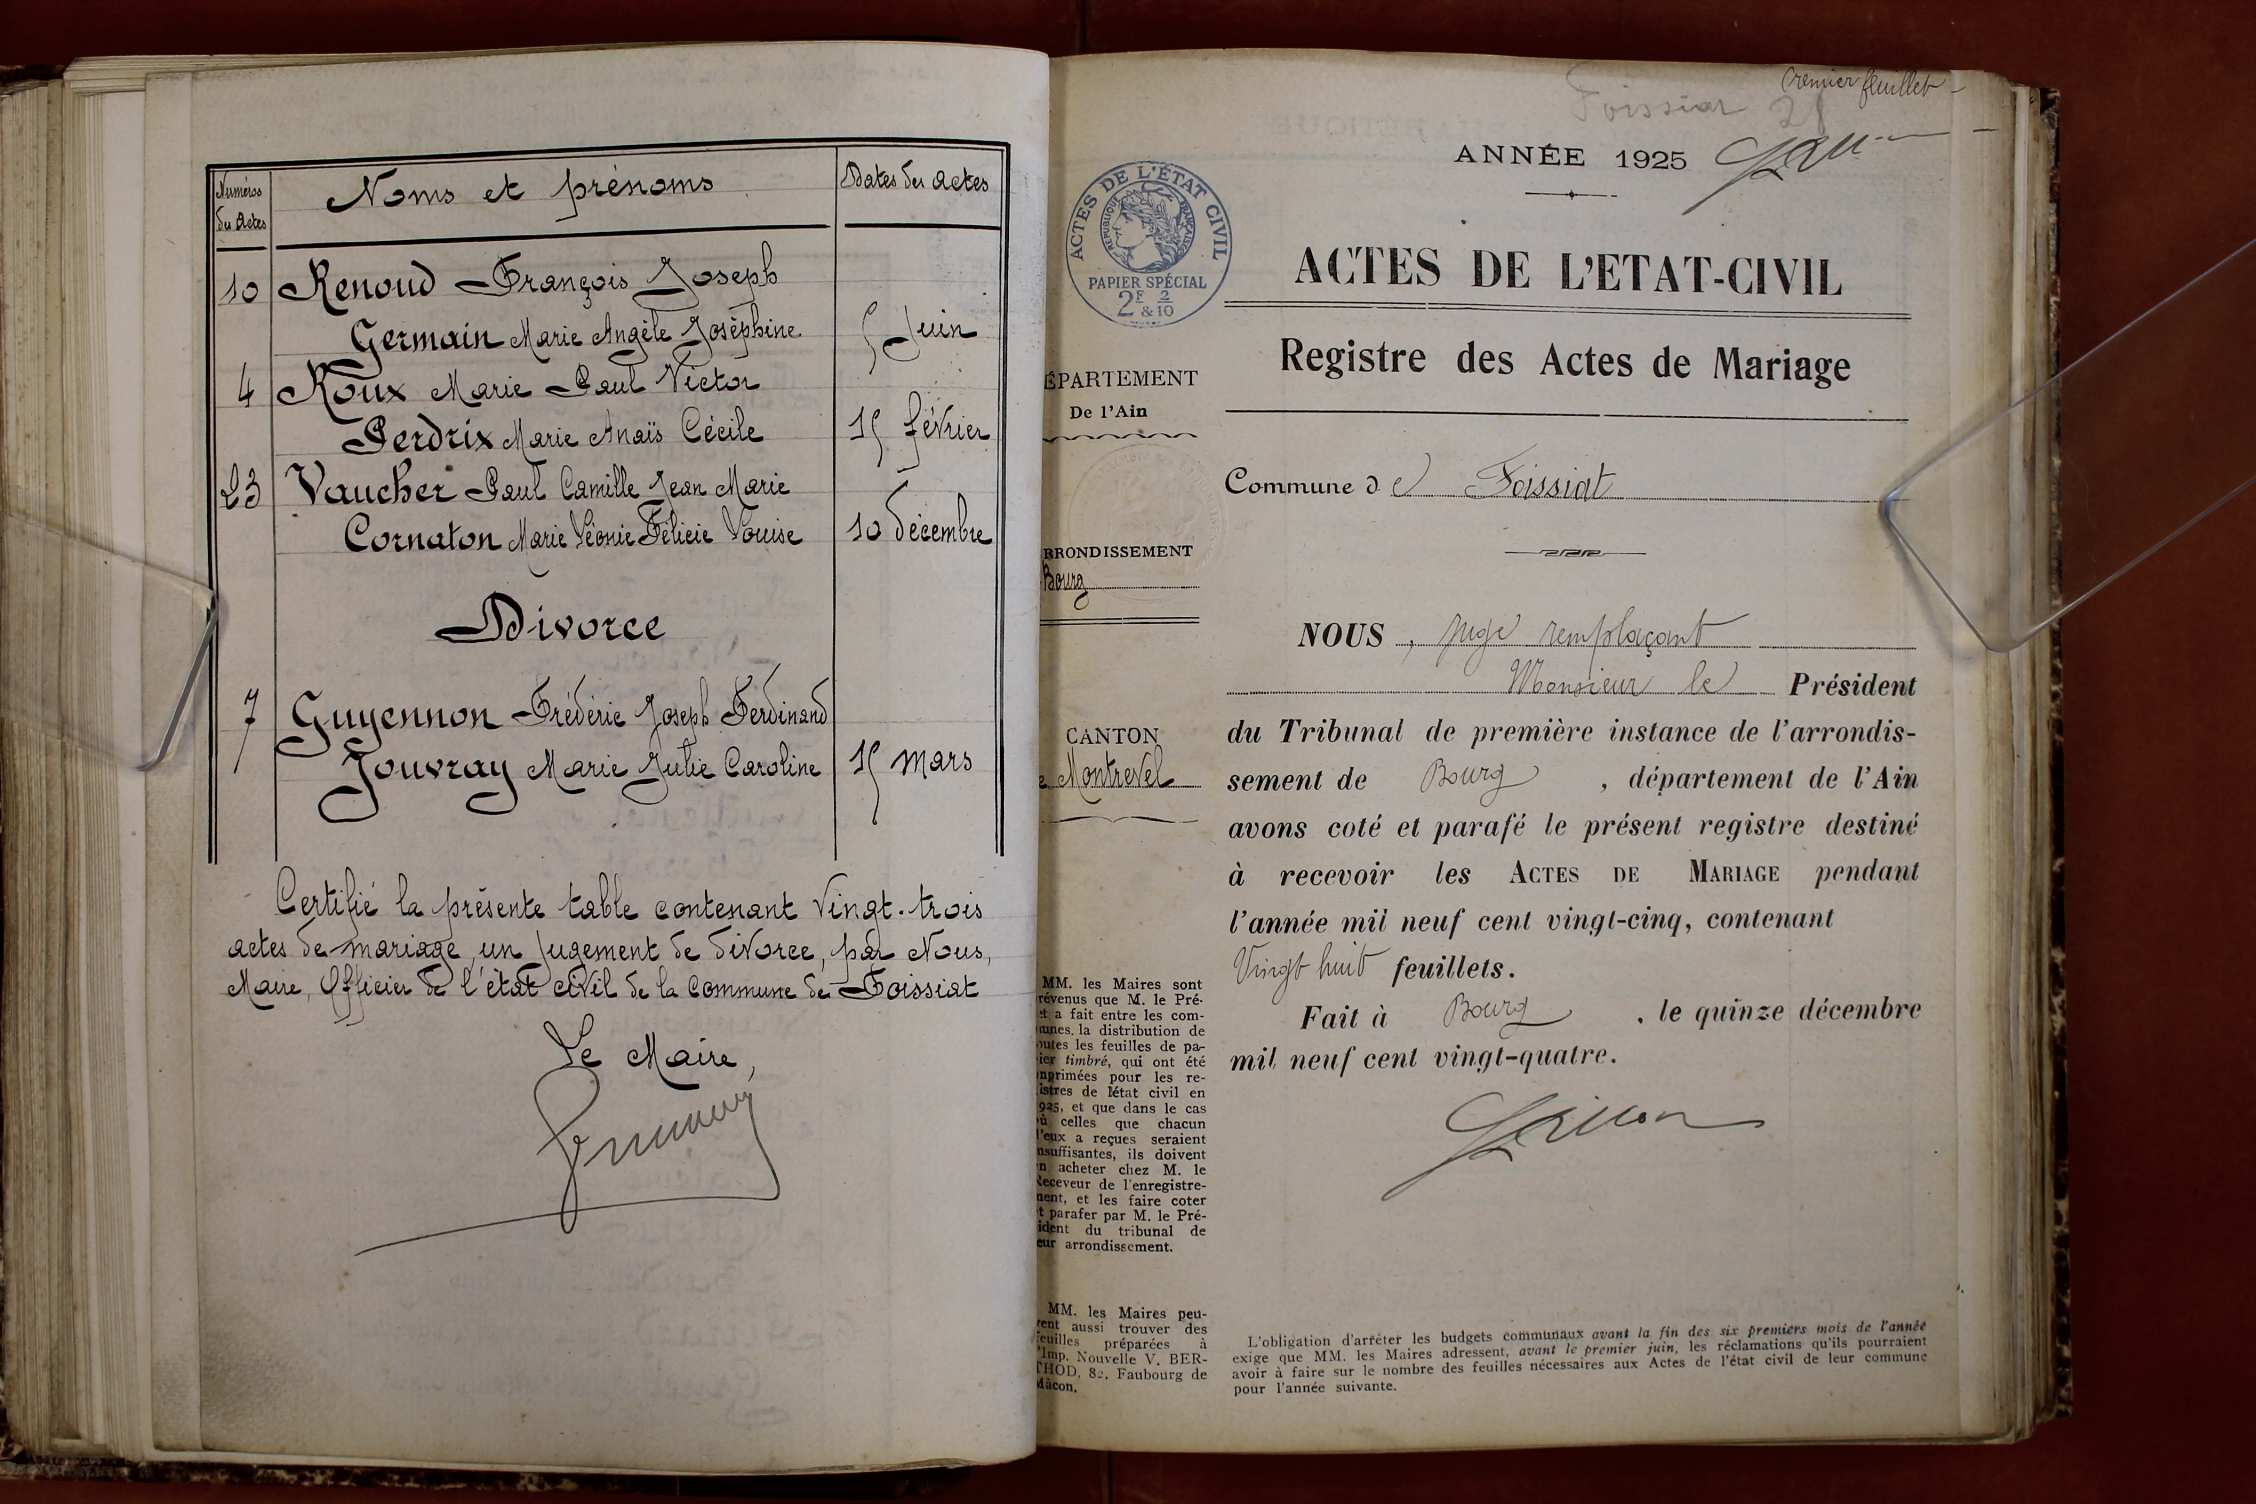 Numéros des Actes
Noms et prénoms
Dates des actes
10 Renoud François Joseph
Germain Marie Angèle Joséphine 5 Juin
4 Roux Marie Paul Victor
Perdrix Marie Anaïs Cécile 15 février
23 Vaucher Paul Camille Jean Marie
Cornaton Marie Léonie Félicie Louise 10 décembre
Divorce
7 Guyennon Frédéric Joseph Ferdinand
Jouvray Marie Julie Caroline 15 mars
Certifié la présente table contenant vingt-trois
actes de mariage, un jugement de divorce, par Nous,
Maire, Officier de l'état civil de la Commune de Foissiat
Le Maire,
Premier feuillet
Foissiat 28
ANNÉE 1925
ACTES DE L'ÉTAT CIVIL
RÉPUBLIQUE FRANÇAISE
PAPIER SPÉCIAL
2F & 2/10
ACTES DE L'ETAT-CIVIL
Registre des Actes de Mariage
ÉPARTEMENT
De l'Ain
Commune de Foissiat
RRONDISSEMENT
Bourg
CANTON
e Montrevel
NOUS, juge remplaçant
Monsieur le Président
du Tribunal de première instance de l'arrondis-
sement de Bourg, département de l'Ain
avons coté et parafé le présent registre destiné
à recevoir les ACTES DE MARIAGE pendant
l'année mil neuf cent vingt-cinq, contenant
Vingt huit feuillets.
Fait à Bourg, le quinze décembre
mil neuf cent vingt-quatre.
MM. les Maires sont
révenus que M. le Pré-
et a fait entre les com-
unes, la distribution de
outes les feuilles de pa-
ier timbré, qui ont été
mprimées pour les re-
istres de l'état civil en
925, et que dans le cas
ù celles que chacun
l'eux a reçues seraient
nsuffisantes, ils doivent
n acheter chez M. le
Receveur de l'enregistre-
ment, et les faire coter
t parafer par M. le Pré-
ident du tribunal de
eur arrondissement.
MM. les Maires peu-
vent aussi trouver des
feuilles préparées à
l'Imp. Nouvelle V. BER-
THOD, 82, Faubourg de
Mâcon.
L'obligation d'arrêter les budgets communaux avant la fin des six premiers mois de l'année
exige que MM. les Maires adressent, avant le premier juin, les réclamations qu'ils pourraient
avoir à faire sur le nombre des feuilles nécessaires aux Actes de l'état civil de leur commune
pour l'année suivante.